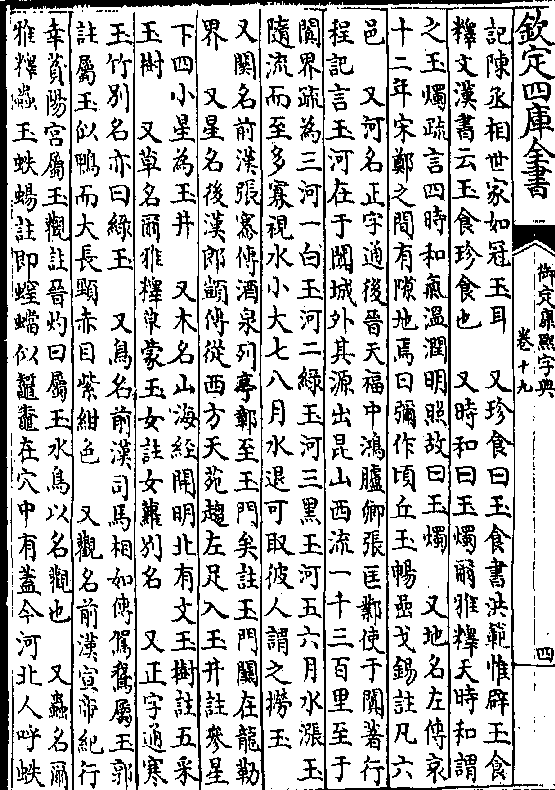 欽定四庫全書
御定康熙字典
卷十九
四
記陳丞相世家如冠玉耳　又珍食曰玉食書洪範惟辟玉食
釋文漢書云玉食珍食也　又時和曰玉燭爾雅釋天時和謂
之玉燭疏言四時和氣溫潤明照故曰玉燭　又地名左傳哀
十二年宋鄭之間有隙地焉曰彌作頃丘玉暢嵒戈錫註凡六
邑　又河名正字通後晉天福中鴻臚卿張匡鄴使于闐著行
程記言玉河在于闐城外其源出昆山西流一千三百里至于
闐界疏為三河一白玉河二綠玉河三黑玉河五六月水漲玉
隨流而至多寡視水小大七八月水退可取彼人謂之撈玉
又關名前漢張騫傳酒泉列亭鄣至玉門矣註玉門關在龍勒
界　又星名後漢郎顗傳從西方天苑趨左足入玉井註參星
下四小星為玉井　又木名山海經開明北有文玉樹註五采
玉樹　又草名爾雅釋草蒙玉女註女蘿別名　又正字通寒
玉竹別名亦曰綠玉　又鳥名前漢司馬相如傳駕鵞屬玉郭
註屬玉似鴨而大長頸赤目紫紺色　又觀名前漢宣帝紀行
幸萯陽宮屬玉觀註晉灼曰屬玉水鳥以名觀也　又蟲名爾
雅釋蟲玉蛈蝪註即螲蟷似鼅鼄在穴中有蓋今河北人呼蛈